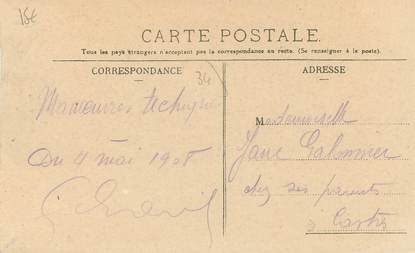 15€
CARTE POSTALE
Tous les pays étrangers n'acceptent pas la correspondance au recto. (Se renseigner à la poste).
CORRESPONDANCE
34
Manœuvres
du 4 mai 1908
ADRESSE
Mademoiselle
Jane
chez ses parents
à Castres